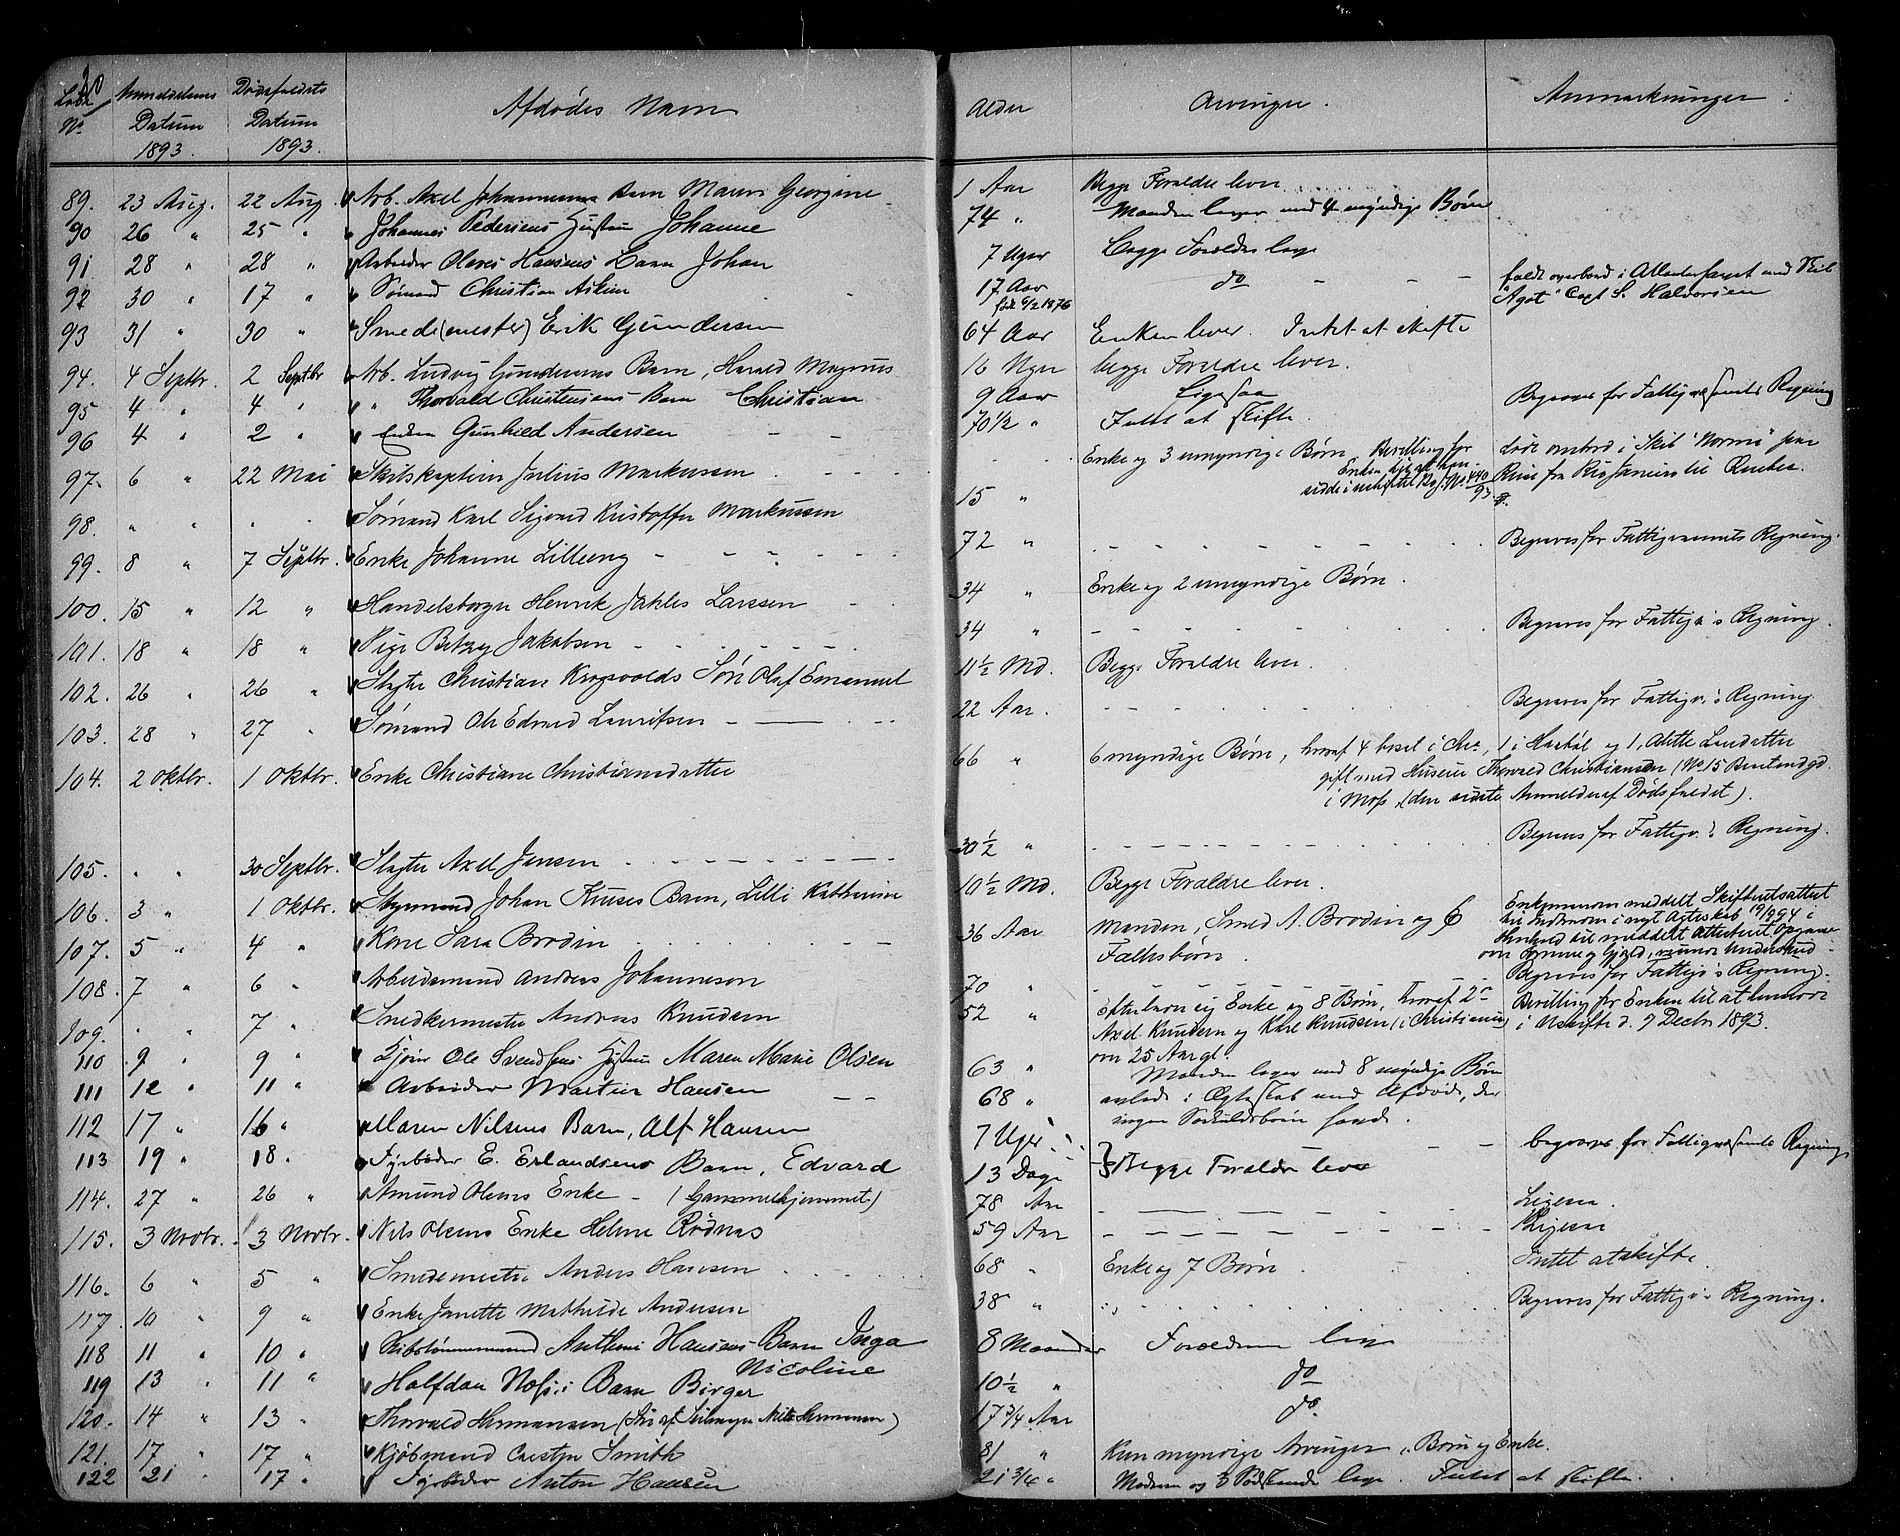 Løbe Anmeldelsens Dødsfaldets
No Datum Datum Afdødes Navn Alder Arvinger. Anmærkninger.
1893. 1893.
89. 23 Aug. 22 Aug. Arb. Axel Johannesens Barn Georgine 1 Aar Begge Forældre lever
90 26 " 25 " Johannes Pedersens Hustru Johanne 74 " Manden lever med 4 myndige Børn
91 28 " 28 " Arbeider Olaves Hansens Barn Johan 7 Uger Begge Forældre leve
92 30 " 17 " Sømand Christian 17 Aar do - - - faldt overbord i Atlanterhavet med Skib
født 6/2 1876 "Agot" Capt S. Halvorsen
93 31 " 30 " Smed(mester) Erik Gundersen 64 Aar Enken lever. Intet at skifte
94. 4 Septbr. 2 Septbr Arb. Ludvig Gundersens Barn, Harald Magnus 16 Uger begge Forældre lever.
95 4 " 4 " " Thorvald Christensens Barn Christian 9 Aar Ligesaa Begraves for Fattigvæsenets Regning
96 4 " 2 " Enken Gunhild Andersen - - 70 1/2 " Intet at skifte.
97. 6 " 22 Mai Skibskaptein Julius Markussen Enke og 3 umyndige Børn. Bevilling for døde ombord i Skib "Norma" paa
Enken til at hen- Reise fra til Quebec.
sidde i uskiftet Bo J. No 440/93
98. " " " Sømand Karl Sigvard Kristoffer Markussen 15 "
99. 8 " 7 Septbr. Enke Johanne Lilleeng - - - 72 " - - - Begraves for Fattigvæsenets Regning.
100. 15 " 12 " Handelsborger Henrik Jahles Larssen 34 " Enke og 2 umyndige Børn.
101. 18 " 18 " Pige Betzy Jakobsen 34 " - - - Begraves for Fattigv's Regning.
102. 26 " 26 " Slagter Christian Krogsvolds Søn Olaf Emanuel 11 1/2 Md. Begge Forældre lever.
103. 28 " 27 " Sømand Ole Edvard Lauritsen 22 Aar. - - - Begraves for Fattigv.'s Regning.
104. 2 Oktbr. 1 Oktbr. Enke Christiane Christiansdatter 66 " 6 myndige Børn, hvoraf 4 bosat i Chr., 1 i og 1,
gift med Thorvald Christiansen (No 15
i Moss, (den sidste Anmelder af Dødsfaldet).
105. " " 30 Septbr. Slagter Axel Jensen 30 1/2 " - - - Begraves for Fattigv.'s Regning.
106. 3 " 1 Oktbr. Styrmand Johan Kruses Barn, Lilli Kathrine 10 1/2 Md. Begge Forældre lever. Enkemanden meddelt Skifteretsattest
107. 5 " 4 " Kone Sara Brodin 36 Aar Manden, Smed A. Brodin og 6 til Indtræden i nyt Ægteskab 19/9 94 i
Fællesbørn. Henhold til meddelt Opgave
108. 7 " 6 " Arbeidsmand Andreas Johannesen 70 " - - - Begraves for Fattigv's Regning.
109. " " 7 " Snedkermester Andreas Knudsen 52 " Efterlevn sig Enke og 8 Børn, hvoraf 2 Bevilling for Enken til at hensidde
Axel Knudsen og Karl Knudsen (i Christiania) i Uskifte d. 9 Decbr 1893.
110 9 " 9 " Ole Svendsens Hustru Maren Marie Olsen 63 " over 25 Aar gl.
111 12 " 11 " Arbeider Martin Hansen - - 68 " Manden lever med 8 myndige Børn
avlede i Ægteskab med Afdøde, der
112 17 " 16 " Maren Nilsens Barn, Alf Hansen 7 Uger ingen Særkuldsbørn havde. - - begraves for Fattigvæsenets Regning
113 19 " 18 " Fyrbøder E. Erlandsens Barn, Edvard 13 Dage } Begge Forældre lever
114. 27 " 26 " Amund Olsens Enke - (Gammelhjemmet) 78 Aar - - - Ligesaa.
115. 3 Novbr. 3 Novbr. Nils Olsens Enke Helene Rødnæs 59 Aar - - - Ligesaa
116. 6 " 5 " Smedemester Anders Hansen 68 " Enke og 7 Børn. Intet at skifte.
117. 10 " 9 " Enke Janette Mathilde Andersen 38 " Begraves for Fattigv's Regning.
118 11 " 10 " Skibstømmermand Anthoni Hansens Barn Inga 8 Maaneder Forældrene leve
Nicoline
119 13 " 11 " Halfdan Barn Birger 10 1/2 " do
120. 14 " 13 " Thorvald Hermansen (Søn af Nils Hermansen) 17 3/4 Aar do.
121. 17 " 17 " Kjøbmand Smith 81 " Kun myndige Arvinger, Børn og Enke.
122 21 " 17 " Fyrbøder Anton Hansen 21 3/4 " Modren og 3 Sødskende leve. Intet at skifte.